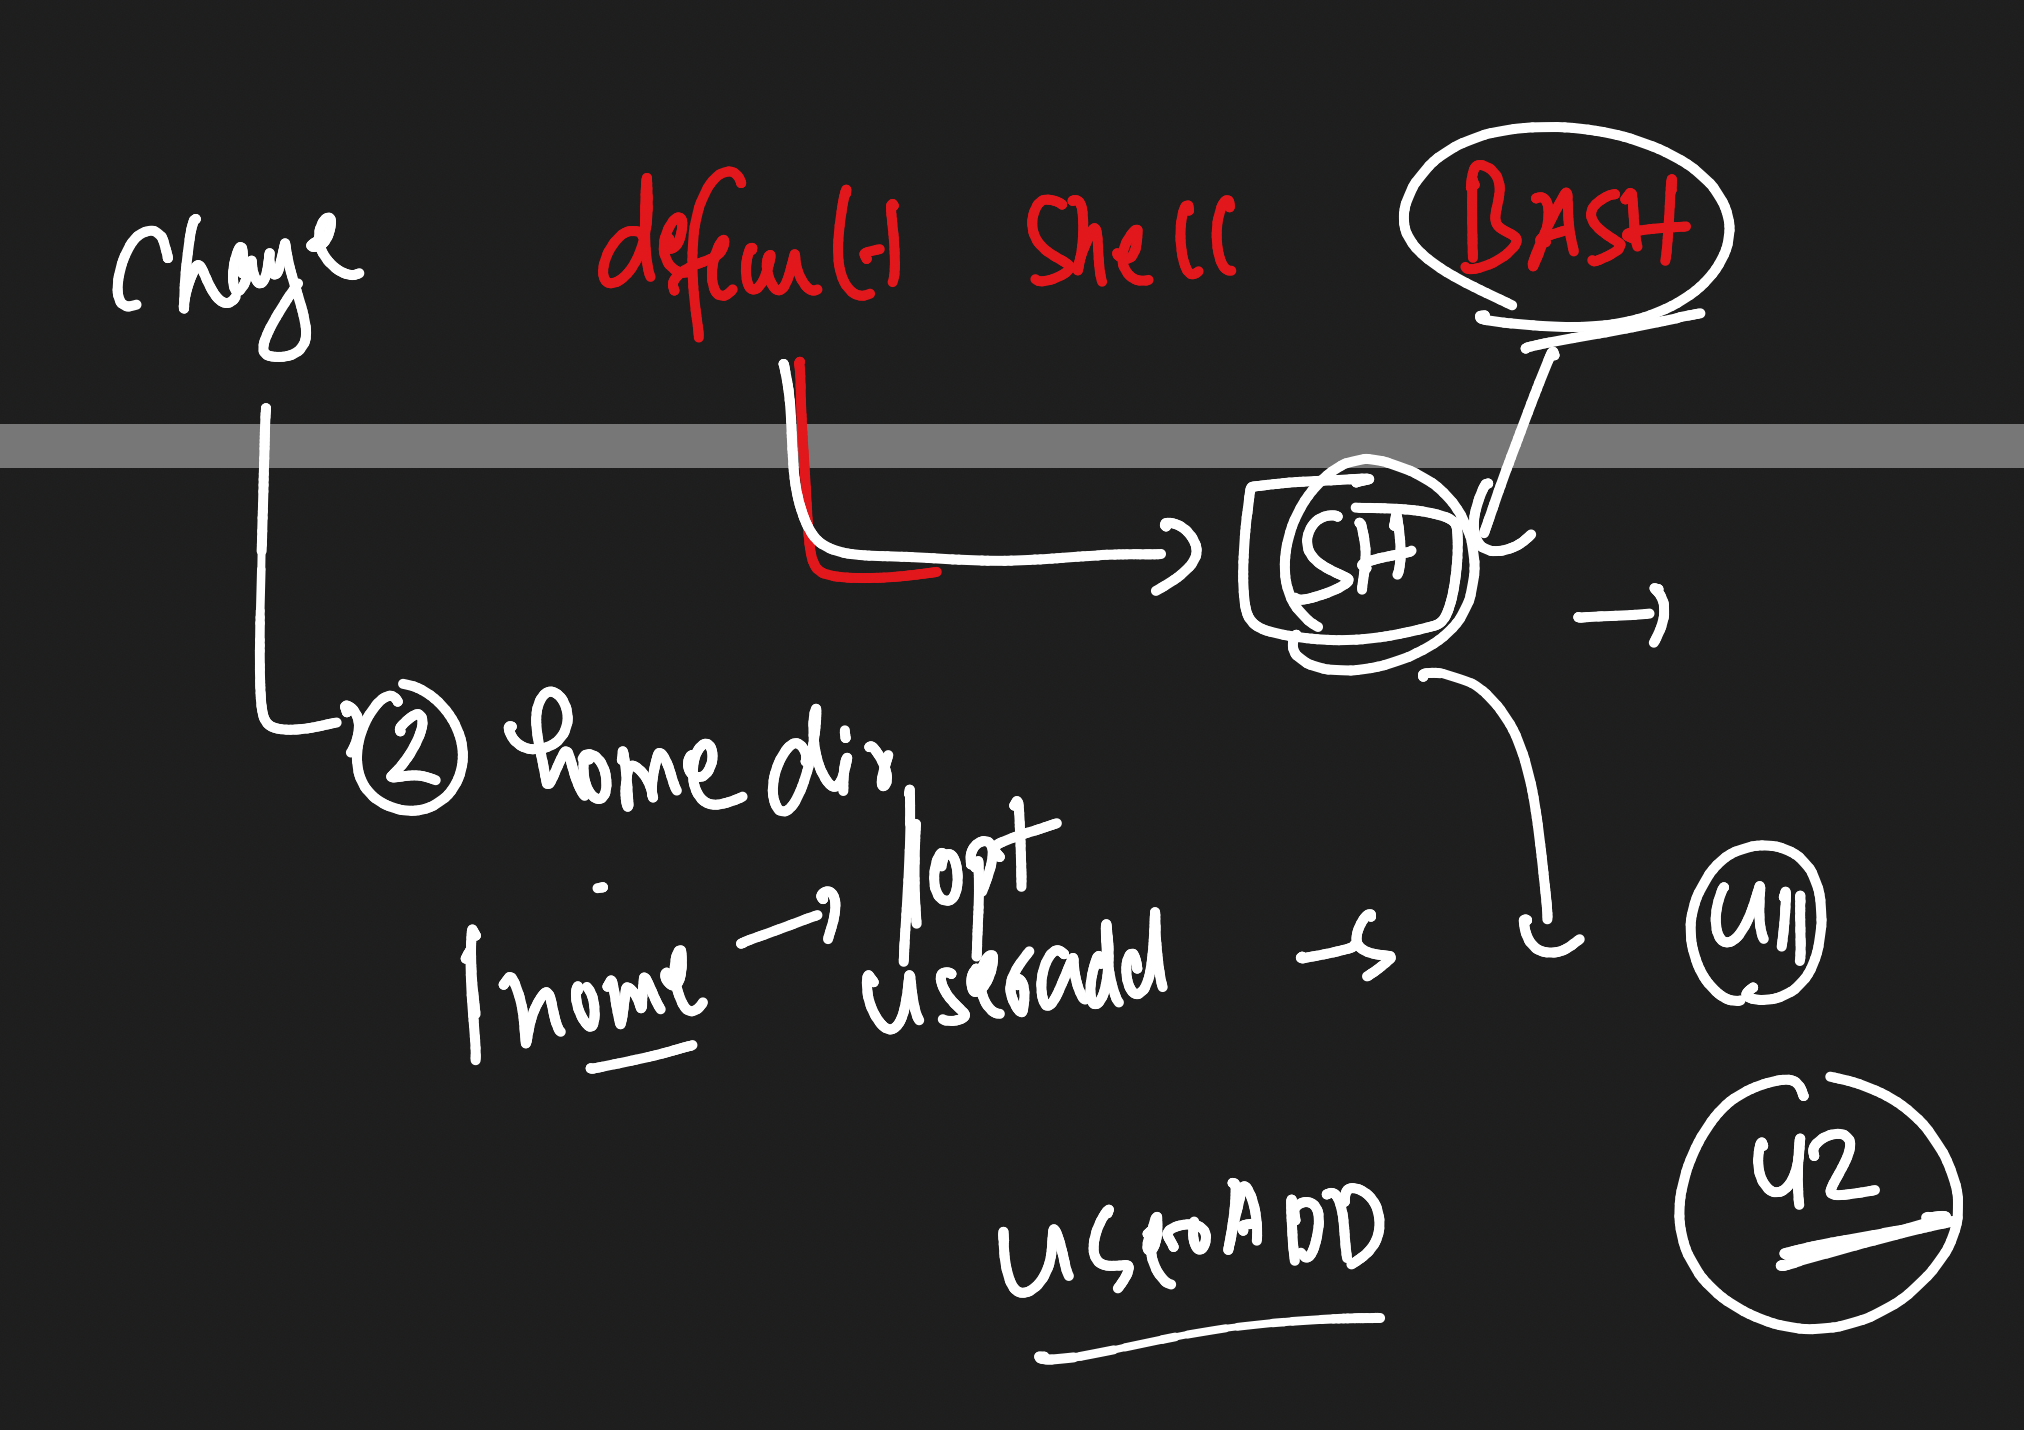 Change default Shell BASH
SH
② home dir
/home → /opt
useradd →
U11
U2
UserADD